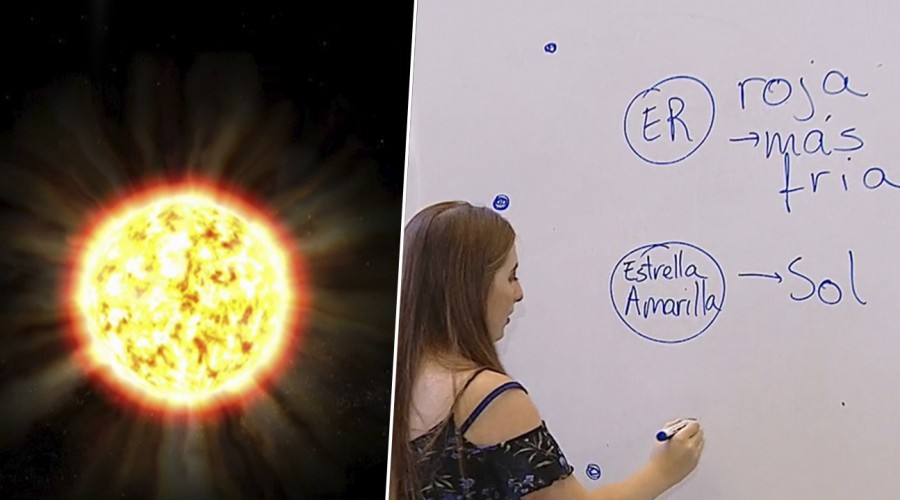 ER
roja
→más
fria
Estrella
Amarilla
→Sol